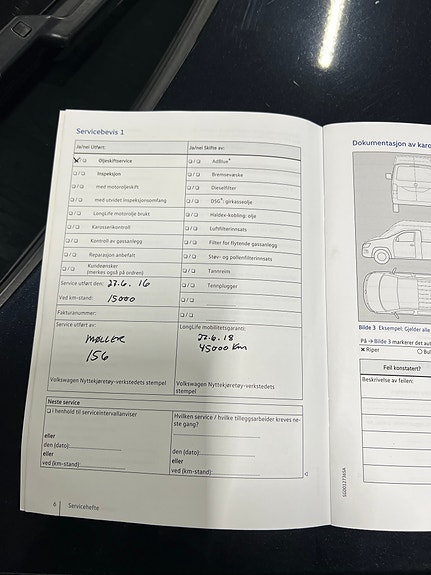 Servicebevis 1
Ja/nei Utført:
☒/☐ Oljeskiftservice
☐/☐ Inspeksjon
☐/☐ – med motoroljeskift
☐/☐ – med utvidet inspeksjonsomfang
☐/☐ LongLife motorolje brukt
☐/☐ Karosserikontroll
☐/☐ Kontroll av gassanlegg
☐/☐ Reparasjon anbefalt
☐/☐ Kundeønsker
(merkes også på ordren)
Service utført den: 27.6.16
Ved km-stand: 15000
Fakturanummer:
Service utført av:
MØLLER
156
Volkswagen Nyttekjøretøy-verkstedets stempel
Ja/nei Skifte av:
☐/☐ AdBlue®
☐/☐ Bremsevæske
☐/☐ Dieselfilter
☐/☐ DSG®: girkasseolje
☐/☐ Haldex-kobling: olje
☐/☐ Luftfilterinnsats
☐/☐ Filter for flytende gassanlegg
☐/☐ Støv- og pollenfilterinnsats
☐/☐ Tannreim
☐/☐ Tennplugger
☐/☐
☐/☐
LongLife mobilitetsgaranti:
27.6.18
45000 km
Volkswagen Nyttekjøretøy-verkstedets
stempel
Neste service
☐ I henhold til serviceintervallanviser
eller
den (dato):
eller
ved (km-stand):
Hvilken service / hvilke tilleggsarbeider kreves ne-
ste gang?
eller
den (dato):
eller
ved (km-stand):
6 Servicehefte
Dokumentasjon av karo
Bilde 3 Eksempel: Gjelder alle
På → Bilde 3 markerer det aut
× Riper
Feil konstatert?
Beskrivelse av feilen: